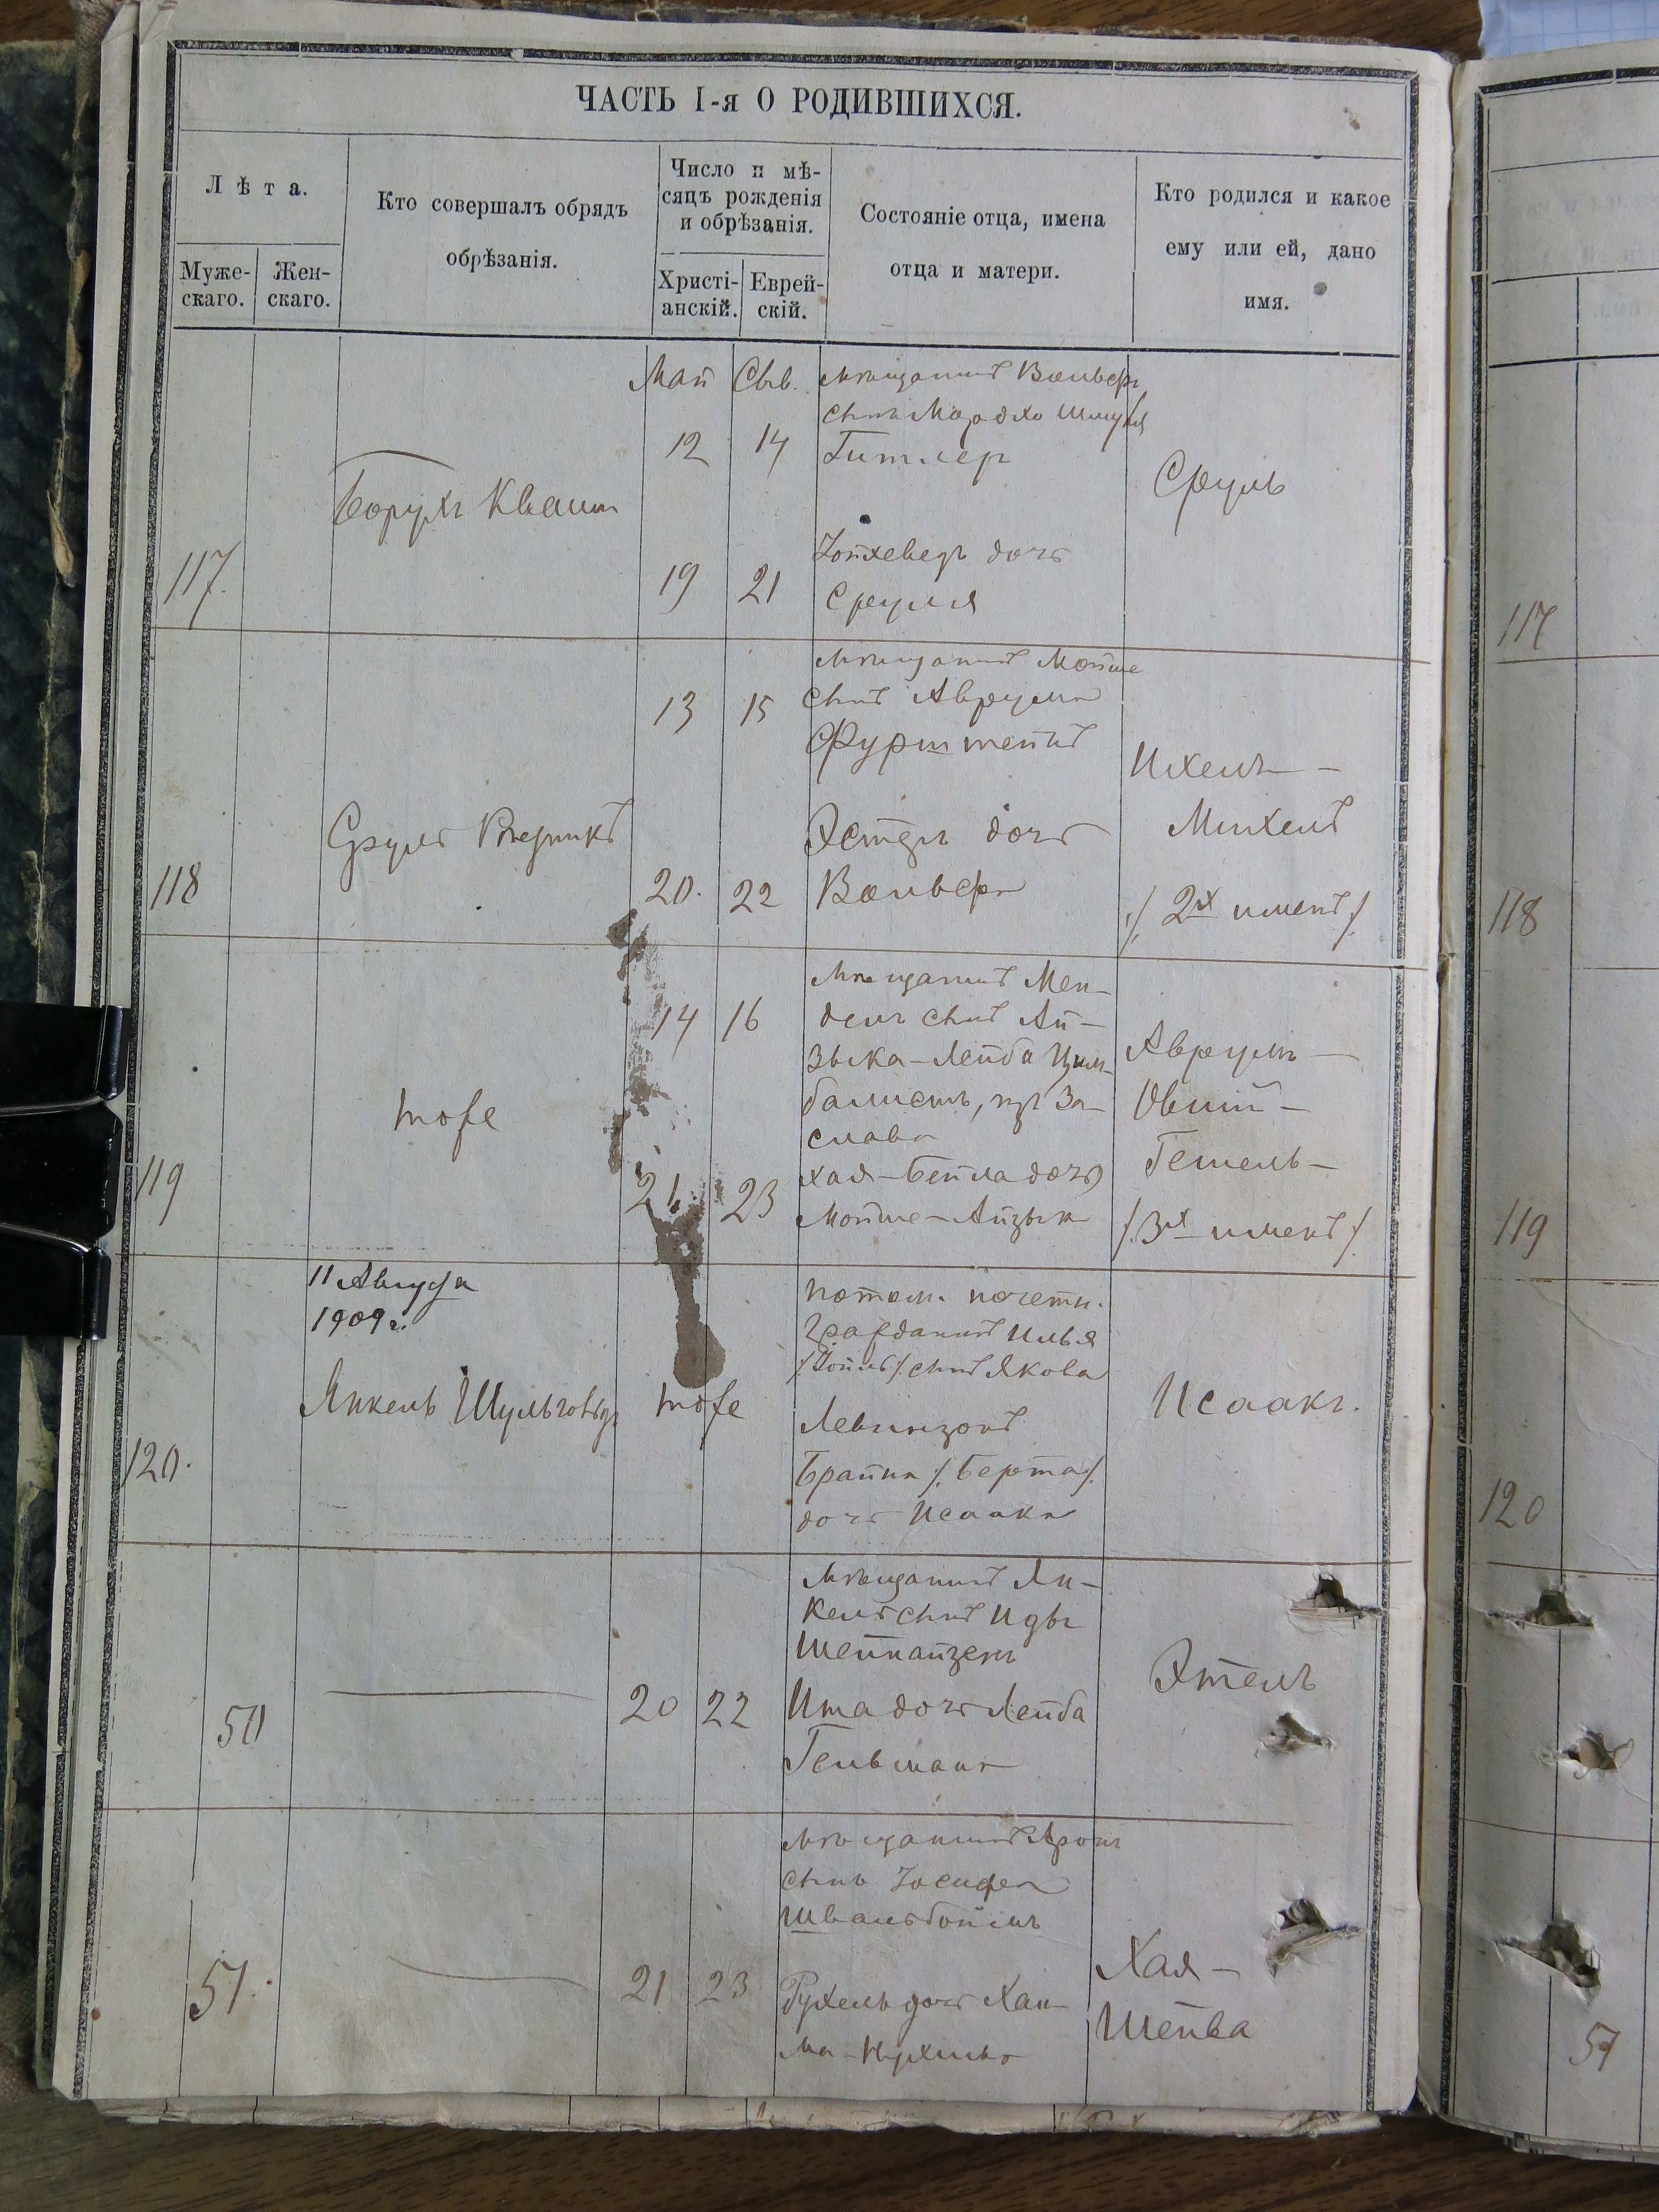 ЧАСТЬ I-я О РОДИВШИХСЯ.
Лѣта.
Муже-
скаго.
Жен-
скаго.
Кто совершалъ обрядъ
обрѣзанія.
Число и мѣ-
сяцъ рожденія
и обрѣзанія.
Христі-
анскій.
Еврей-
скій.
Состояніе отца, имена
отца и матери.
Кто родился и какое
ему или ей, дано
имя.
117.
Борухъ Квашъ
Май
12
19
Сив.
14
21
Мѣщанинъ Вольфъ
сынъ Мордхо Шмуля
Гитлеръ
Іойхеведъ дочь
Сруля
Сруль
118
Сруль Рѣзникъ
13
20.
15
22
Мѣщанинъ Мойше
сынъ Аврума
Фурштейнъ
Эстеръ дочь
Вольфа
Ихель-
Михель
/2хъ именъ/
119
тоже
14
21
16
23
Мѣщанинъ Мен-
дель сынъ Ай-
зыка-Лейба Цим-
балистъ, изъ За-
слава
Хая-Бейла дочь
Мойше-Айзыка
Аврумъ-
Овший-
Гешель-
/3хъ именъ/
120.
11 Августа
1909 г.
Янкель
тоже
Потом. почетн.
гражданинъ Илья
/Іойль/ сынъ Якова
Левинзонъ
Брайна /Берта/
дочь Исаака
Исаакъ.
50
20
22
Мѣщанинъ Ян-
кель сынъ Иды
Шейнайзенъ
Ита дочь Лейба
Гельмана
Этель
51.
21
23
Мѣщанинъ Аронъ
сынъ Іосифа
Швальбоймъ
Рухель дочь Хаи-
ма-
Хая-
Шейва
117
118
119
120
51